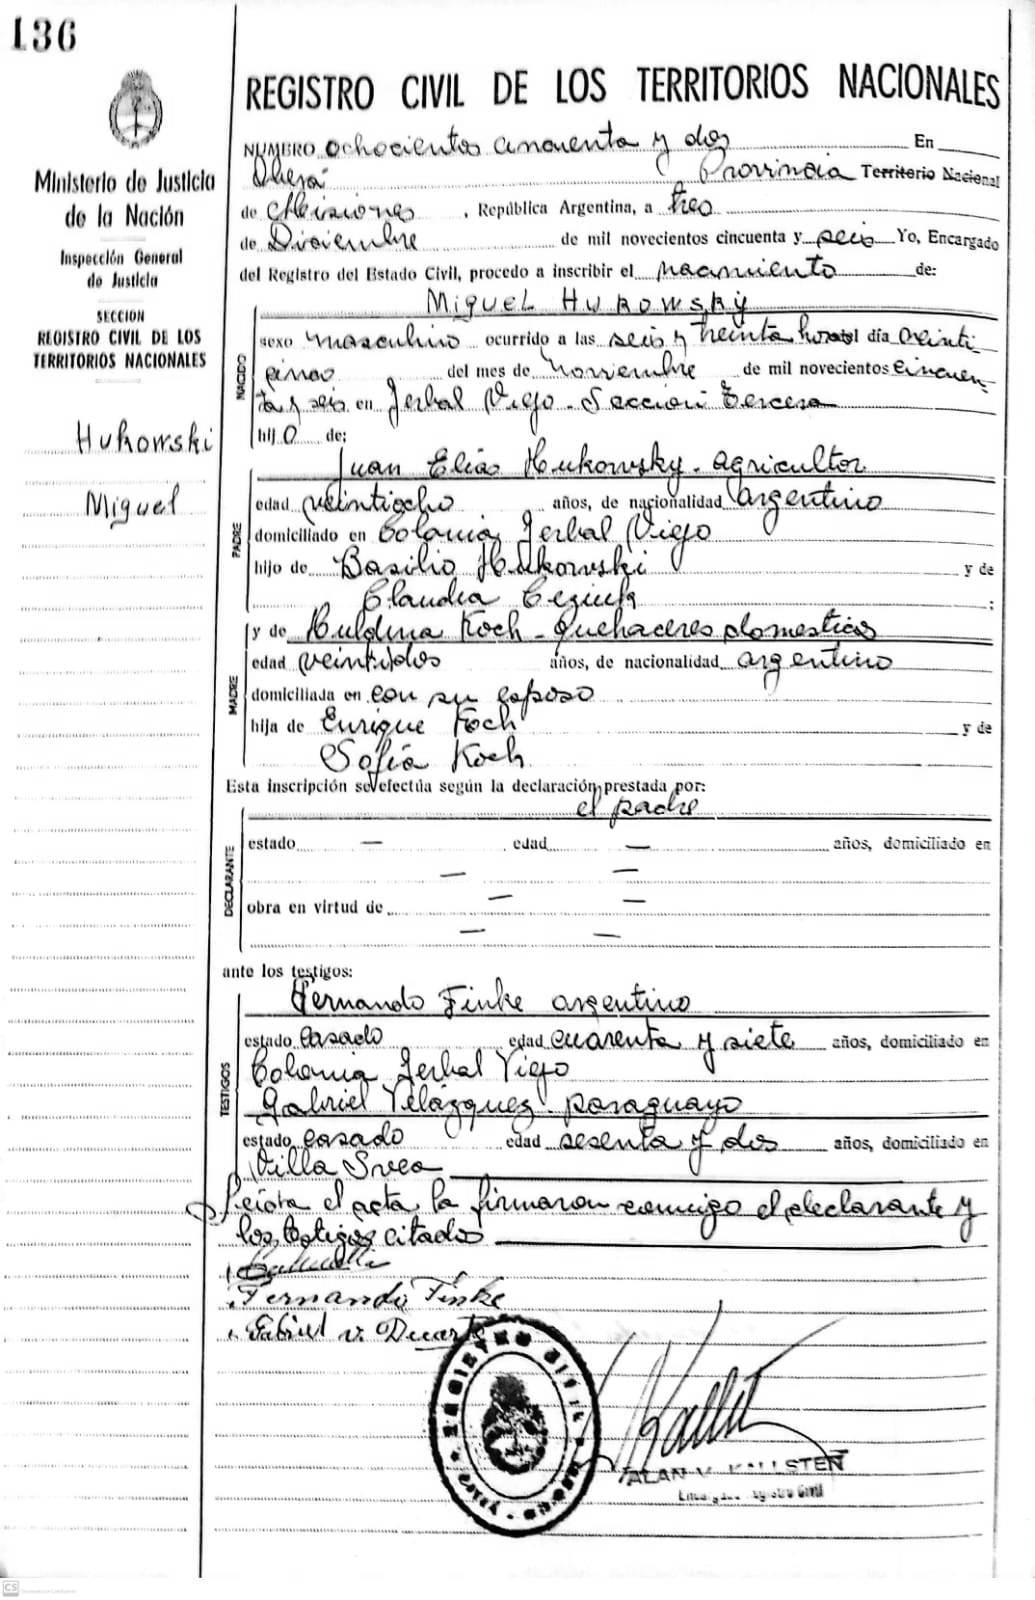 136
Ministerio de Justicia
de la Nación
Inspección General
de Justicia
SECCION
REGISTRO CIVIL DE LOS
TERRITORIOS NACIONALES
Hukowski
Miguel
REGISTRO CIVIL DE LOS TERRITORIOS NACIONALES
NUMERO ochocientos cincuenta y dos En
Oberá Provincia Territorio Nacional
de Misiones, República Argentina, a tres
de Diciembre de mil novecientos cincuenta y seis Yo, Encargado
del Registro del Estado Civil, procedo a inscribir el nacimiento de:
Miguel Hukowsky
NACIDO
sexo masculino ocurrido a las seis y treinta horas del día veinti
cinco del mes de Noviembre de mil novecientos cincuen
ta y seis en Yerbal Viejo - Sección Tercera
hijo de:
Juan Elías Hukowsky - agricultor
PADRE
edad veintiocho años, de nacionalidad argentino
domiciliado en Colonia Yerbal Viejo
hijo de Basilio Hukowski y de
Claudia :
MADRE
y de Huldina Koch - Quehaceres domesticos
edad veintidos años, de nacionalidad argentino
domiciliada en con su esposo
hija de Enrique Koch y de
Sofía Koch
Esta inscripción se efectúa según la declaración prestada por:
el padre
DECLARANTE
estado — edad — años, domiciliado en
— —
obra en virtud de — —
— —
ante los testigos:
TESTIGOS
Fernando Finke argentino
estado casado edad cuarenta y siete años, domiciliado en
Colonia Yerbal Viejo
Gabriel Velázquez paraguayo
estado casado edad sesenta y dos años, domiciliado en
Villa Svea
Leída el acta la firmaron conmigo el declarante y
los testigos citados
Fernando Finke
Gabriel v. Duarte
REGISTRO CIVIL
ALAN V. KALLSTEN
Encargado Registro Civil
CS